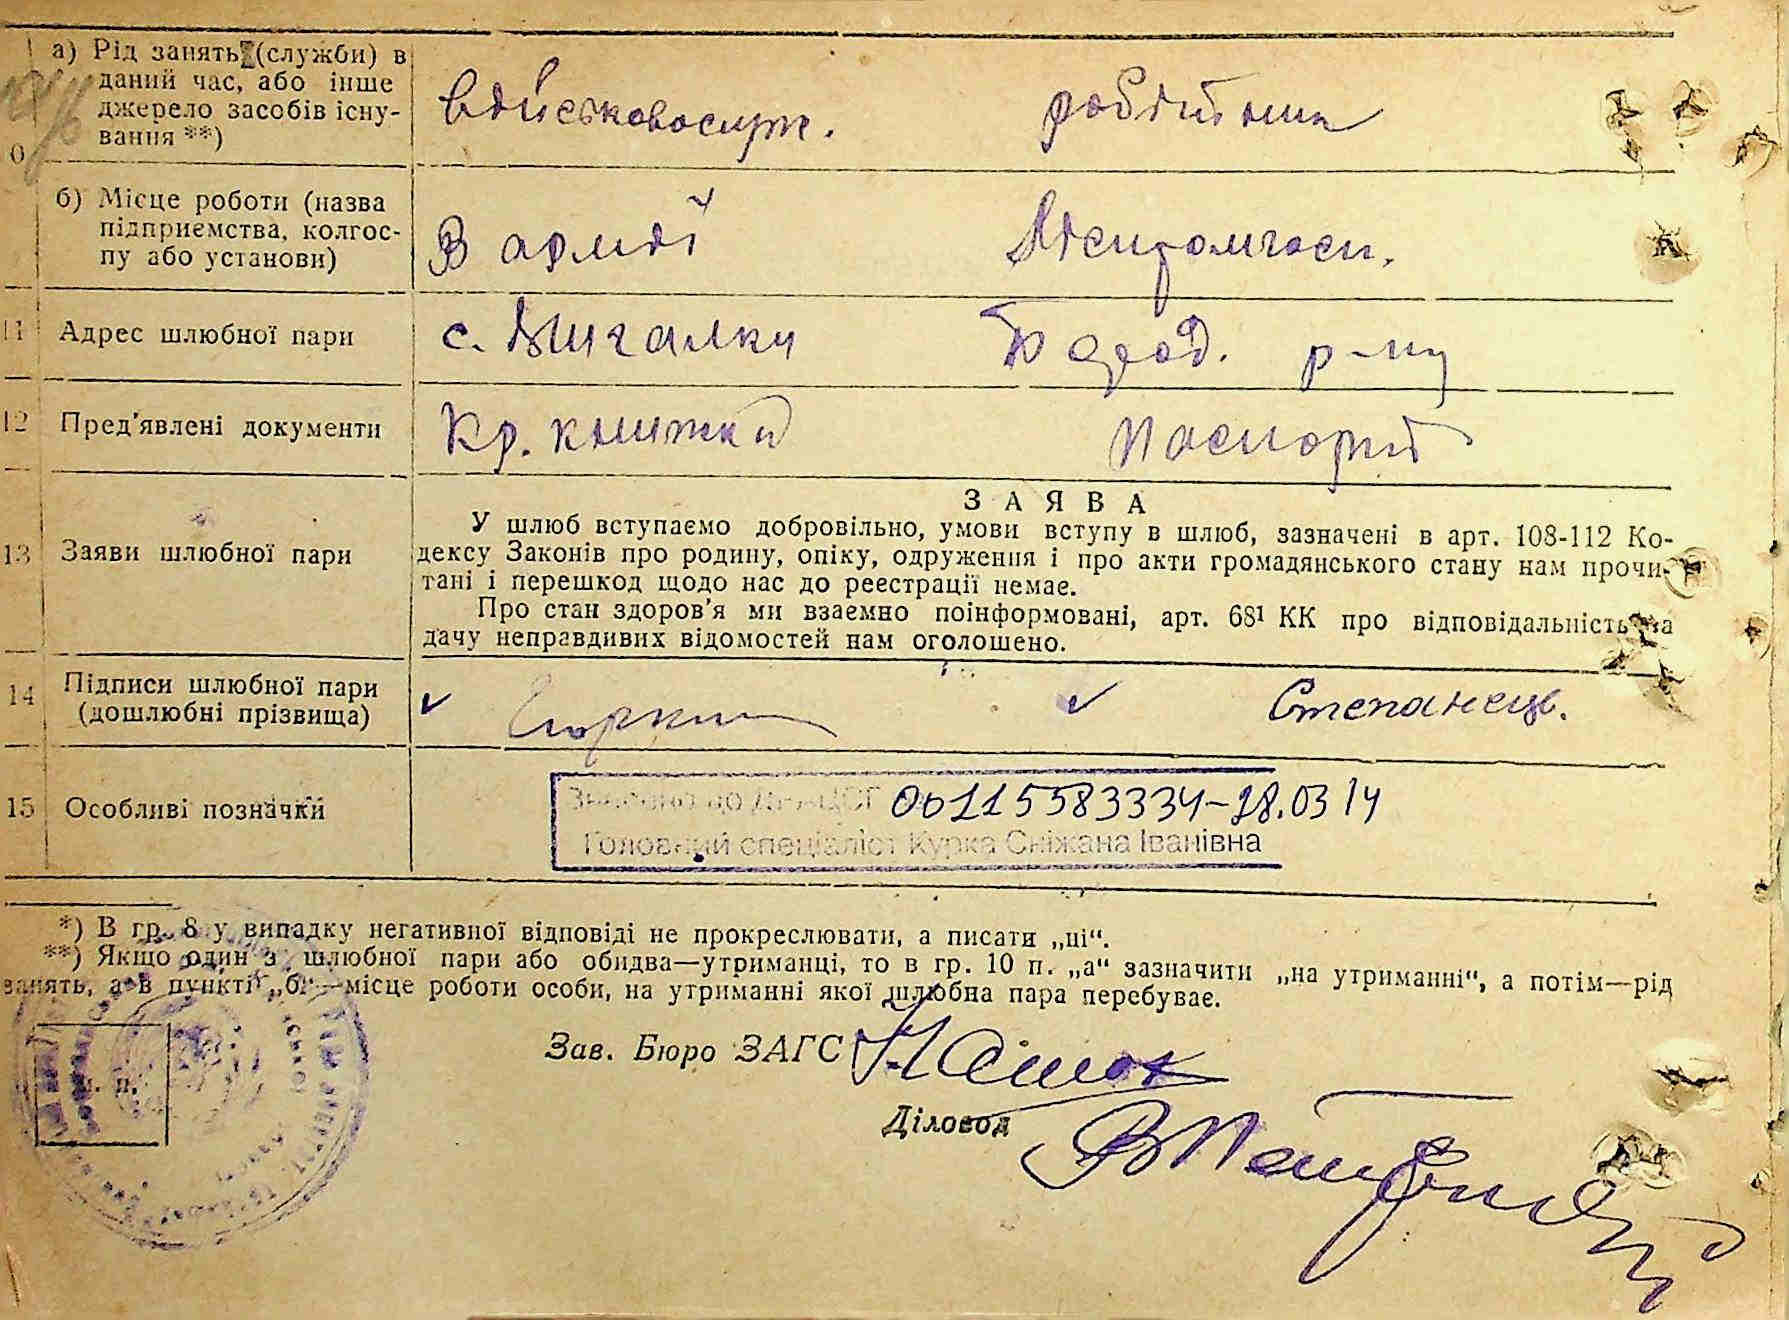 а) Рід занять (служби) в
даний час, або інше
джерело засобів існу-
вання **)
військовослуж. робітниця
б) Місце роботи (назва
підприємства, колгос-
пу або установи)
В армії
11 Адрес шлюбної пари
с. Бигалки Бород. р-ну
12 Пред'явлені документи
Кр. книжка Паспорт
13 Заяви шлюбної пари
ЗАЯВА
У шлюб вступаємо добровільно, умови вступу в шлюб, зазначені в арт. 108-112 Ко-
дексу Законів про родину, опіку, одруження і про акти громадянського стану нам прочи-
тані і перешкод щодо нас до реєстрації немає.
Про стан здоров'я ми взаємно поінформовані, арт. 68¹ КК про відповідальність за
дачу неправдивих відомостей нам оголошено.
14 Підписи шлюбної пари
(дошлюбні прізвища)
Степанець.
15 Особливі позначки
00115583334-28.03 14
Головний спеціаліст Курка Сніжана Іванівна
*) В гр. 8 у випадку негативної відповіді не прокреслювати, а писати „ні“.
**) Якщо один з шлюбної пари або обидва—утриманці, то в гр. 10 п. „а“ зазначити „на утриманні“, а потім—рід
занять, а в пункті „б“—місце роботи особи, на утриманні якої шлюбна пара перебуває.
Зав. Бюро ЗАГС
Діловод
м. п.